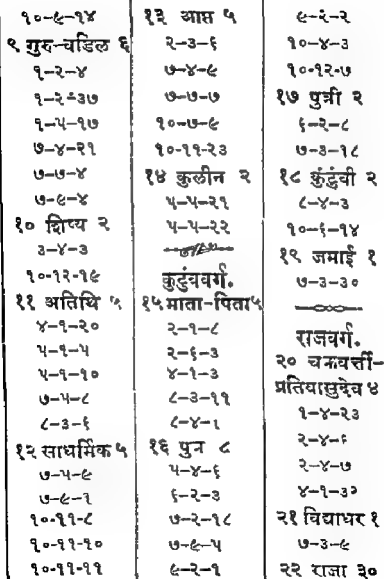 १०-९-१४
९ गुरु-वडिल ६
१-२-४
१-२-३७
१-५-१७
७-४-२१
७-७-४
७-९-४
१० शिष्य २
३-४-३
१०-१२-१९
११ अतिथि ५
४-१-२०
५-१-५
५-१-१०
७-५-८
८-३-६
१२ साधर्मिक ५
७-५-९
७-९-१
१०-११-८
१०-११-१०
१०-११-११
१३ आप्त ५
२-३-६
७-४-९
७-७-७
१०-७-९
१०-११-२३
१४ कुलीन २
५-५-२१
५-५-२२
कुटुंबवर्ग.
१५ माता-पिता ५
२-१-८
२-६-३
४-१-३
८-३-११
८-४-१
१६ पुत्र ८
५-४-६
६-२-३
७-२-१८
७-९-५
९-२-१
९-२-२
१०-४-३
१०-१२-७
१७ पुत्री २
६-२-८
७-३-१८
१८ कुंटुंवी २
८-४-३
१०-६-१४
१९ जमाई १
७-३-३०
राजवर्ग.
२० चक्रवर्त्ती-
प्रतिवासुदेव ४
१-४-२३
२-४-६
२-४-७
४-१-३२
२१ विद्याधर १
७-३-९
२२ राजा ३०